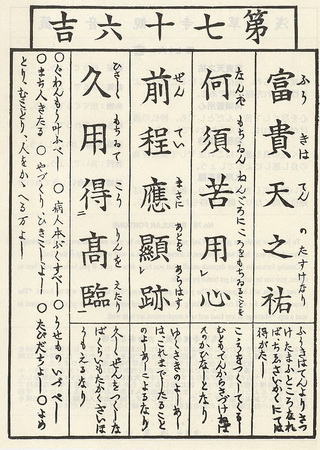 第七十六吉
ふうきはてんのたすけなり
富貴天之祐
ふうきはてんよりさつ
けたまふところなれ
ばちゑさいかくにては
得がたし
なんぞもちゐんねんごろにこころをもちゐることを
何須苦用心
こゝろをつくしてくるし
むともてんからさづけねば
かひなしとなり
ぜんていまさにあとをあらはす
前程應顯跡
ゆくさきのよしあし
はこれまでしたること
のよしあしによるなり
ひさしくもちゐてこうりんをえたり
久用得髙臨
久しくぜんをつくしな
ばくらいもたかくさいは
うもえるなり
○ぐわんもう叶ふべし ○病人本ぶくすべし ○うせものいづべし
○まち人きたる ○やづくりひきこしよし ○たびだちよし ○よめ
とりむことり人をかゝへる万よし